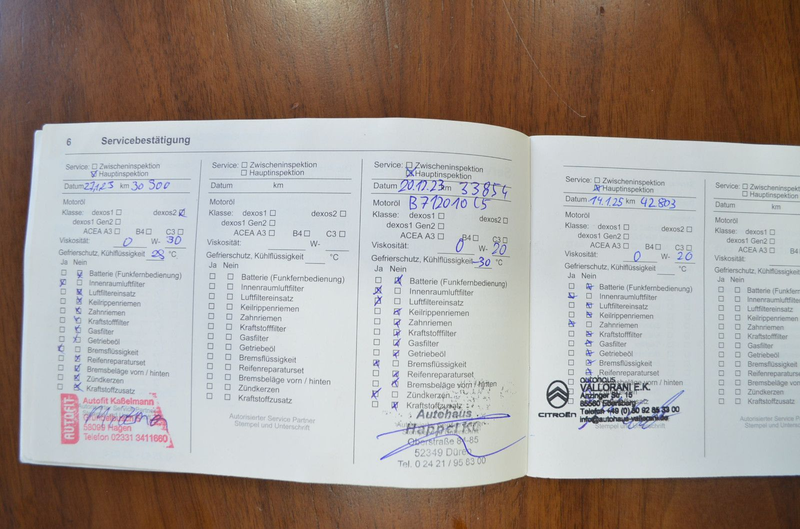 6 Servicebestätigung
Service: Zwischeninspektion
Hauptinspektion
Datum 22.1.23 km 30 300
Motoröl
Klasse: dexos1 dexos2
dexos1 Gen2
ACEA A3 B4 C3
Viskosität: 0 W- 30
Gefrierschutz, Kühlflüssigkeit 28 °C
Ja Nein
Batterie (Funkfernbedienung)
Innenraumluftfilter
Luftfiltereinsatz
Keilrippenriemen
Zahnriemen
Kraftstofffilter
Gasfilter
Getriebeöl
Bremsflüssigkeit
Reifenreparaturset
Bremsbeläge vorn / hinten
Zündkerzen
Kraftstoffzusatz
AUTOFIT
Autofit Kaßelmann
58099 Hagen
Telefon 02331 3411660
Service: Zwischeninspektion
Hauptinspektion
Datum km
Motoröl
Klasse: dexos1 dexos2
dexos1 Gen2
ACEA A3 B4 C3
Viskosität: W-
Gefrierschutz, Kühlflüssigkeit °C
Ja Nein
Batterie (Funkfernbedienung)
Innenraumluftfilter
Luftfiltereinsatz
Keilrippenriemen
Zahnriemen
Kraftstofffilter
Gasfilter
Getriebeöl
Bremsflüssigkeit
Reifenreparaturset
Bremsbeläge vorn / hinten
Zündkerzen
Kraftstoffzusatz
Autorisierter Service Partner
Stempel und Unterschrift
Service: Zwischeninspektion
Hauptinspektion
Datum 20.12.23 km 33854
Motoröl B712010 C5
Klasse: dexos1 dexos2
dexos1 Gen2
ACEA A3 B4 C3
Viskosität: 0 W- 20
Gefrierschutz, Kühlflüssigkeit -30 °C
Ja Nein
Batterie (Funkfernbedienung)
Innenraumluftfilter
Luftfiltereinsatz
Keilrippenriemen
Zahnriemen
Kraftstofffilter
Gasfilter
Getriebeöl
Bremsflüssigkeit
Reifenreparaturset
Bremsbeläge vorn / hinten
Zündkerzen
Kraftstoffzusatz
Autohaus
Happel KG
Oberstraße 81-85
52349 Düren
Tel. 0 24 21 / 95 63 00
Service: Zwischeninspektion
Hauptinspektion
Datum 14.1.25 km 42803
Motoröl
Klasse: dexos1 dexos2
dexos1 Gen2
ACEA A3 B4 C3
Viskosität: 0 W- 20
Gefrierschutz, Kühlflüssigkeit °C
Ja Nein
Batterie (Funkfernbedienung)
Innenraumluftfilter
Luftfiltereinsatz
Keilrippenriemen
Zahnriemen
Kraftstofffilter
Gasfilter
Getriebeöl
Bremsflüssigkeit
Reifenreparaturset
Bremsbeläge vorn / hinten
CITROËN
AUTOHAUS
VALLORANI E.K.
Anzinger Str. 15
85560 Ebersberg
Service: Zwischeninspektion
Hauptinspektion
Datum km
Motoröl
Klasse: dexos1
dexos1 Gen2
ACEA A3
Viskosität:
Gefrierschutz, Kühlflüssig
Ja Nein
Batterie (Funkfernb
Innenraumluftfilter
Luftfiltereinsatz
Keilrippenriemen
Zahnriemen
Kraftstofffilter
Gasfilter
Getriebeöl
Bremsflüssigkeit
Reifenreparaturse
Bremsbeläge vorn
Zündkerzen
Kraftstoffzusatz
Autorisierter Se
Stempel und